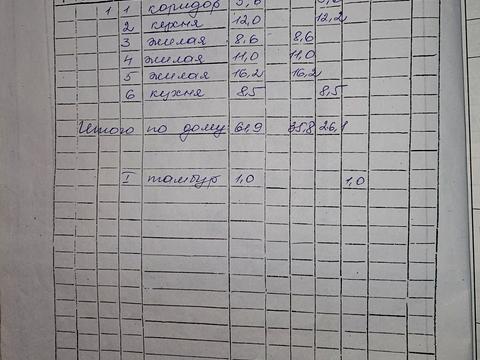 1 1 коридор 5,6 5,6
2 кухня 12,0 12,2
3 жилая 8,6 8,6
4 жилая 11,0 11,0
5 жилая 16,2 16,2
6 кухня 8,5 8,5
Итого по дому 61,9 35,8 26,1
I тамбур 1,0 1,0